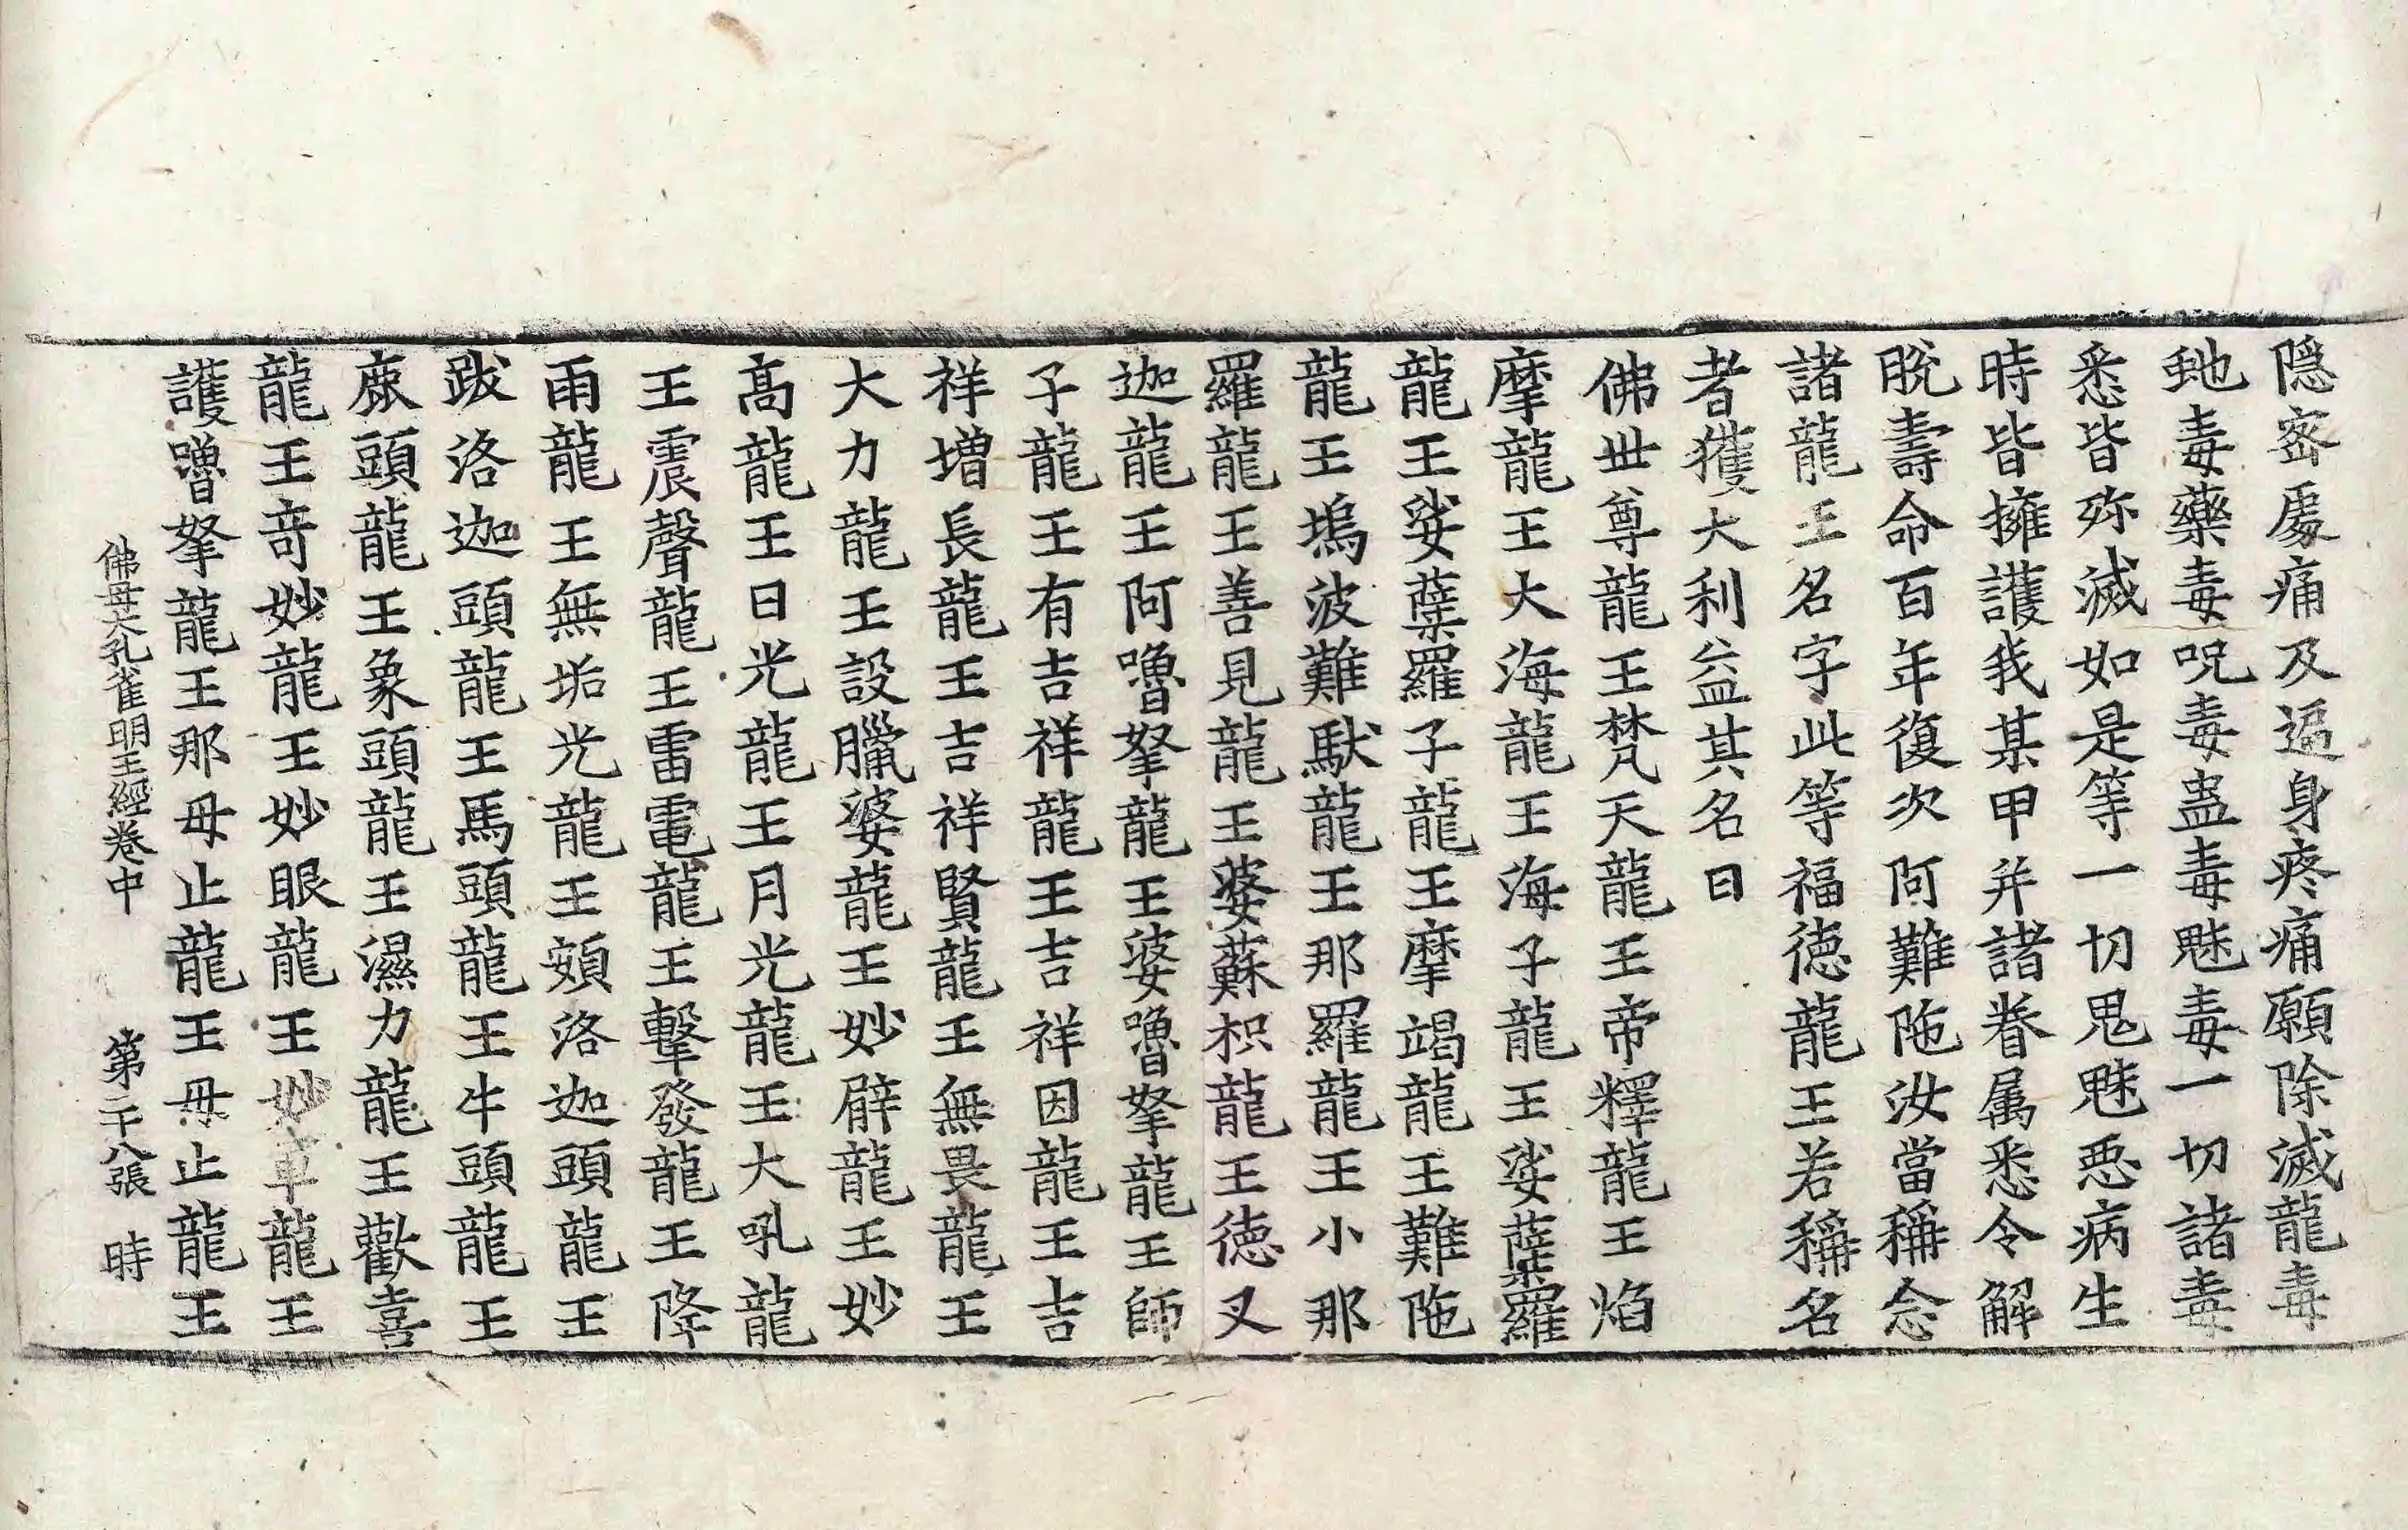 隐宻處痛及逅身疼痛願除滅龍毒
虵毒藥毒呪毒蠱毒魅毒一切諸毒
悉皆殄滅如是等一切鬼魅悪病生
時皆擁護我某甲并諸眷属悉令解
脫壽命百年復次阿難陁汝當稱念
諸龍王名字此等福徳龍王若稱名
者獲大利益其名曰
佛世尊龍王梵天龍王帝釋龍王焰
摩龍王大海龍王海子龍王娑蘖羅
龍王娑蘖羅子龍王摩竭龍王難陁
龍王塢波難馱龍王那羅龍王小那
羅龍王善見龍王婆蘇枳龍王徳叉
迦龍王阿嚕拏龍王婆嚕拏龍王師
子龍王有吉祥龍王吉祥因龍王吉
祥増長龍王吉祥賢龍王無畏龍王
大力龍王設臘婆龍王妙臂龍王妙
髙龍王日光龍王月光龍王大吼龍
王震聲龍王雷電龍王擊發龍王降
雨龍王無垢光龍王頞洛迦頭龍王
跋洛迦頭龍王馬頭龍王牛頭龍王
鹿頭龍王象頭龍王濕力龍王歡喜
龍王竒妙龍王妙眼龍王妙軍龍王
護嚕拏龍王那毋止龍王毋止龍王
佛母大孔雀明王經卷中 第二十八張 時